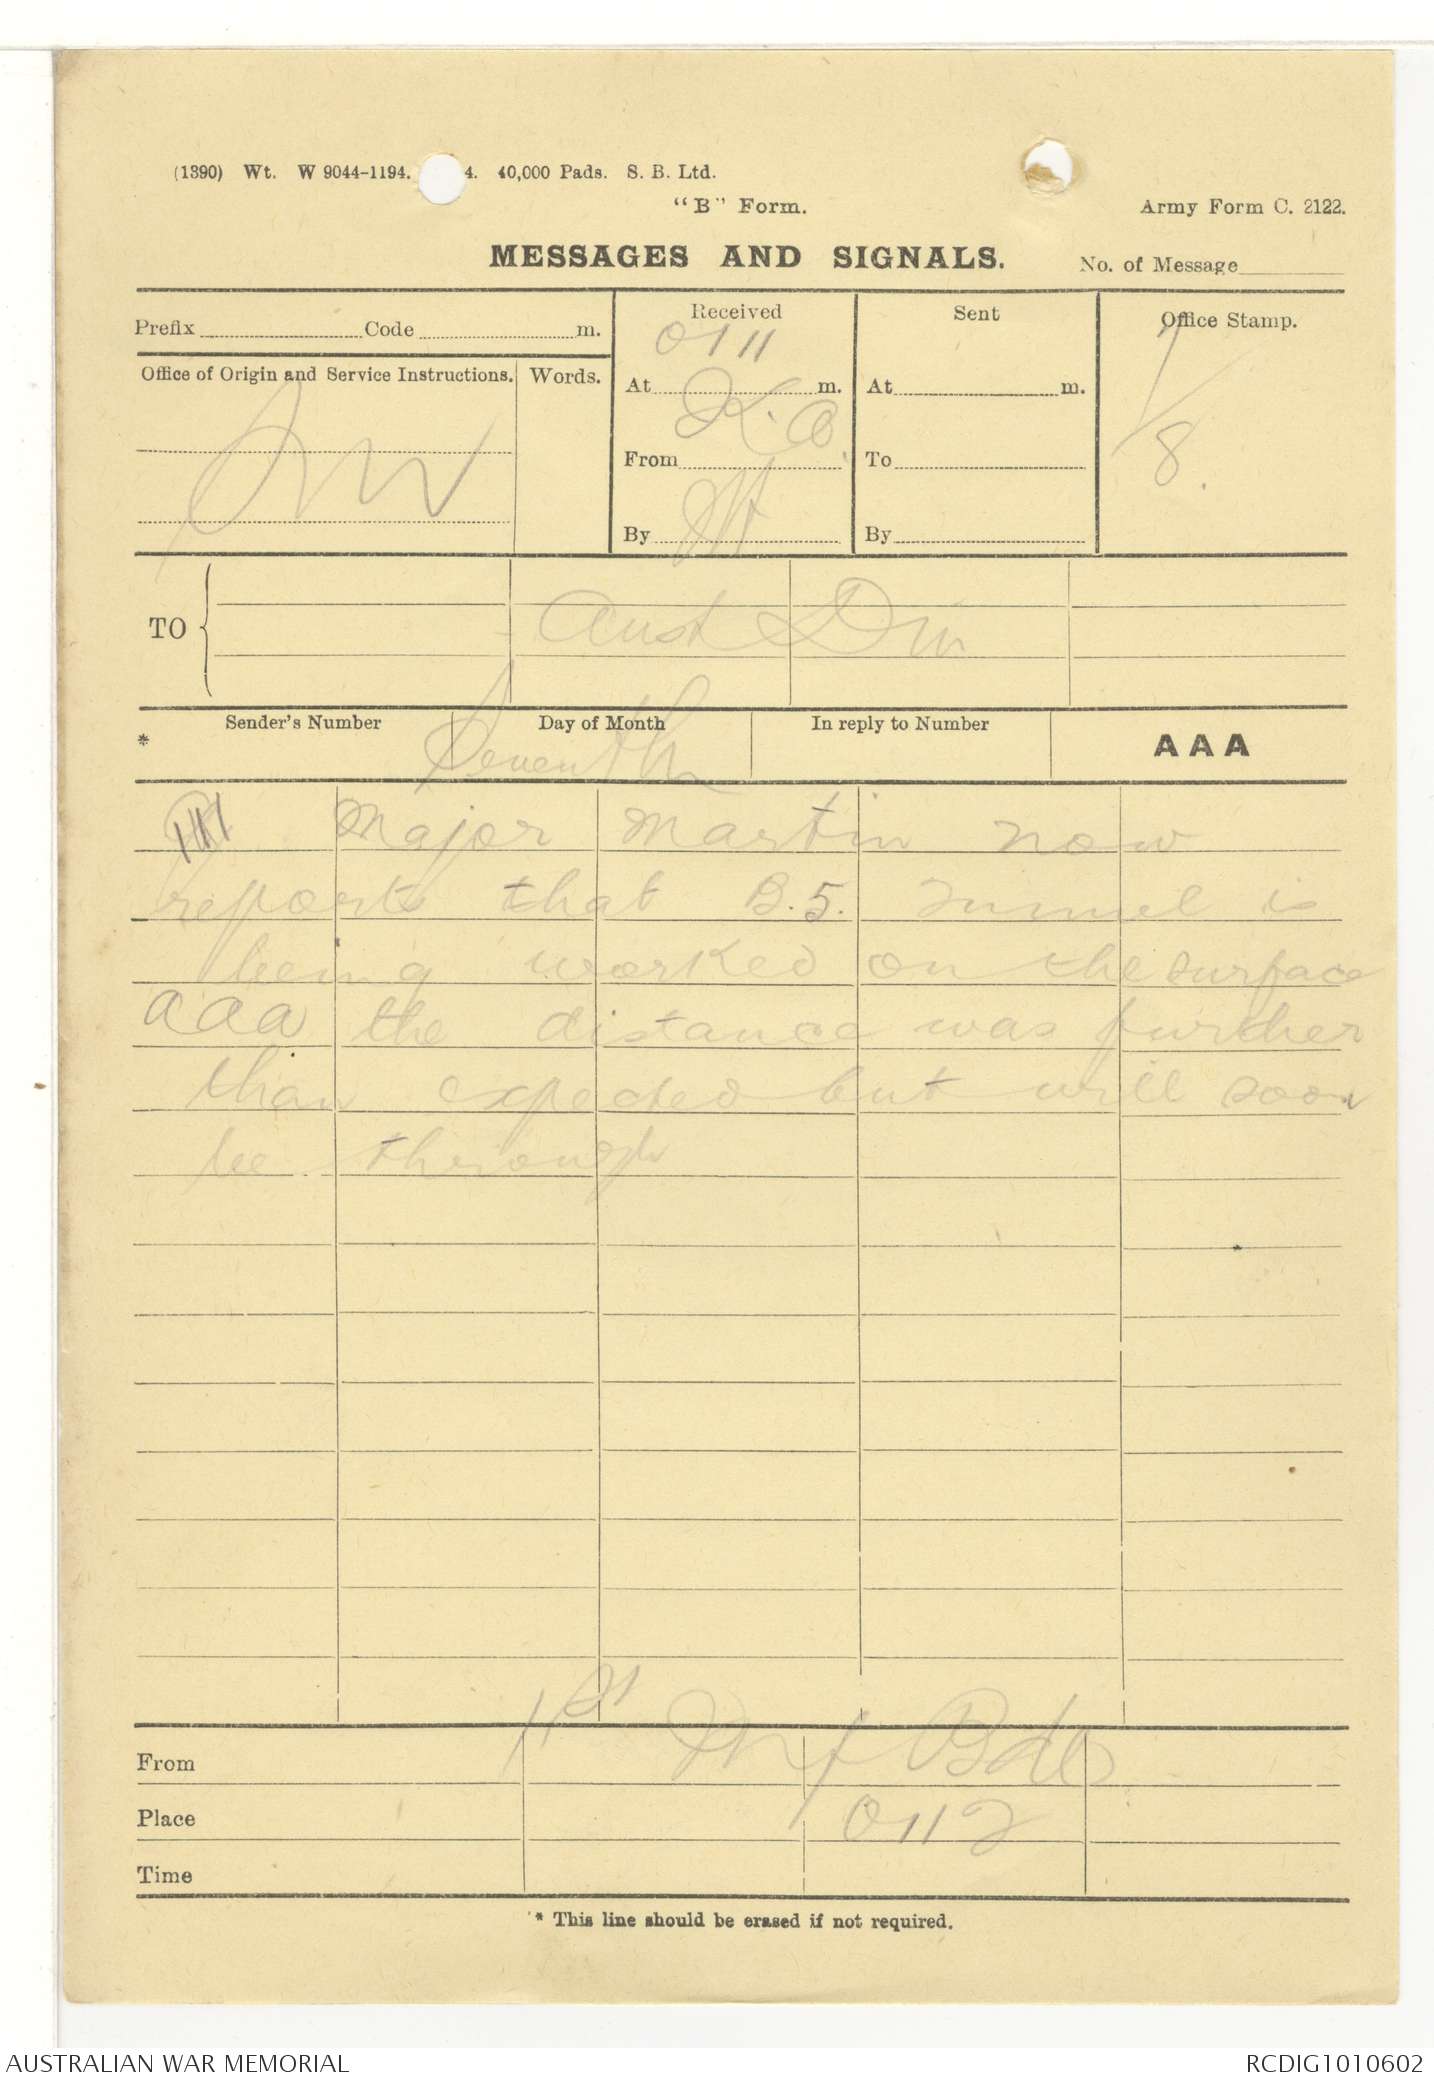 (1390) Wt. W 9044-1194. 4. 40,000 Pads. S. B. Ltd.
"B" Form.
Army Form C. 2122.
MESSAGES AND SIGNALS.
No. of Message
Prefix Code m.
Received
Sent
Office Stamp.
Office of Origin and Service Instructions.
Words.
0111
At m.
At m.
7/8.
From
To
By
By
TO
Aust Div
Sender's Number
Day of Month
In reply to Number
AAA
*
Seventh
Major Martin now
reports that B.5. Tunnel is
being worked on the surface
aaa the distance was further
than expected but will soon
be through
From
1st Inf Bde
Place
0112
Time
* This line should be erased if not required.
AUSTRALIAN WAR MEMORIAL
RCDIG1010602